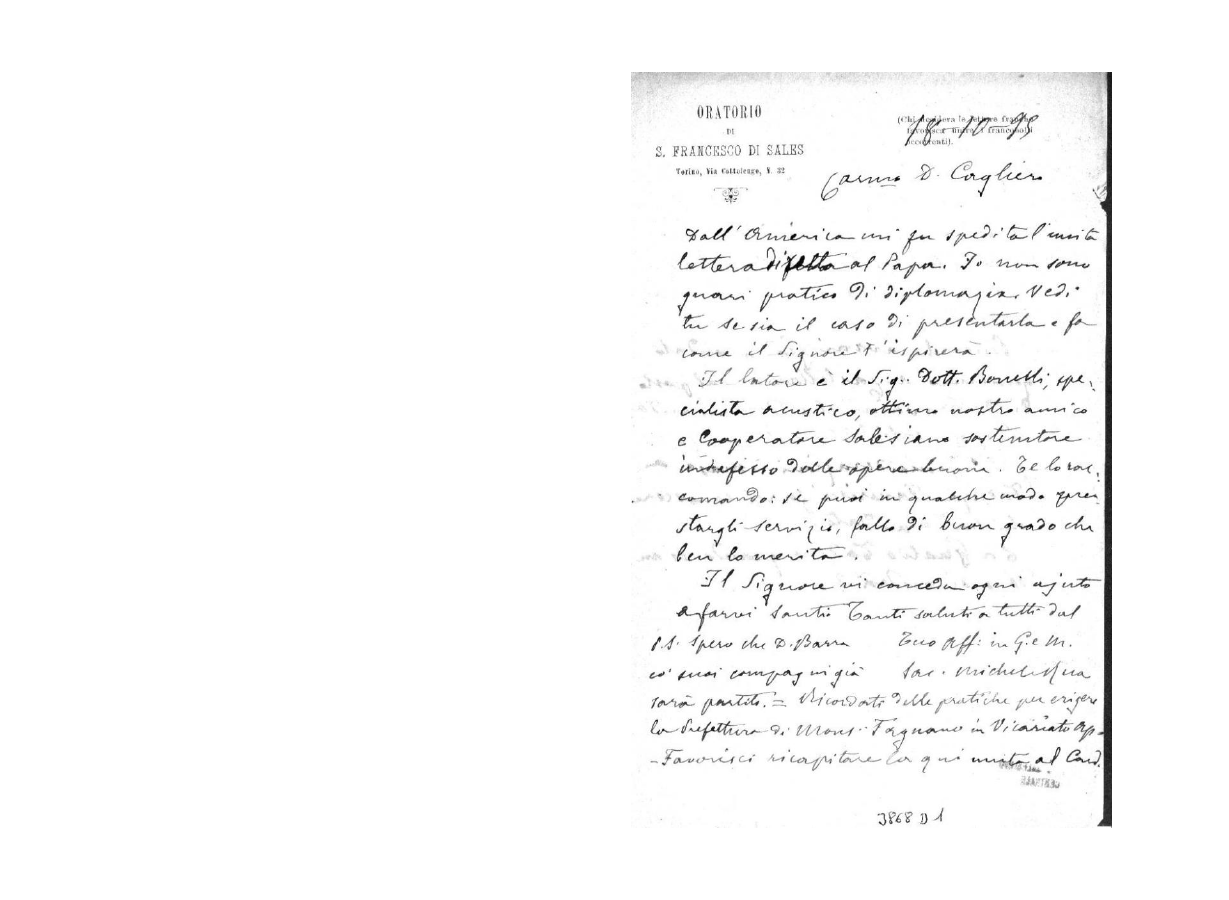 ORATORIO
DI
S. FRANCESCO DI SALES
Torino, Via Cottolengo, N. 32
(Chi desidera le lettere
favorisca unire i francobolli
occorrenti).
18-10-95
Carmo D. Cagliero
Dall'America mi fu spedita l'unita
lettera diretta al Papa. Io non sono
guari pratico di diplomazia. Vedi
tu se sia il caso di presentarla e fa
come il Signore t'ispirerà.
Il latore è il Sig. Dott. Bonelli, spe-
cialista acustico, ottimo nostro amico
e Cooperatore Salesiano sostenitore
indefesso delle opere buone. Te lo rac-
comando: se puoi in qualche modo pre-
stargli servizio, fallo di buon grado che
ben lo merita.
Il Signore vi conceda ogni ajuto
a farvi santi Tanti saluti a tutti dal
Tuo Aff: in G. e M.
Sac. Michele Rua
P.S. Spero che D. Barra
co' suoi compagni già
sarà partito. = Ricordati delle pratiche per erigere
la Prefettura di Mons. Fagnano in Vicariato Ap-
- Favorisci ricapitare la qui unita al Card.
CENTRALE
3868 D 1